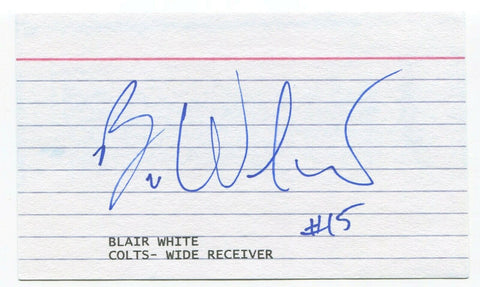 B. White
#15
BLAIR WHITE
COLTS- WIDE RECEIVER